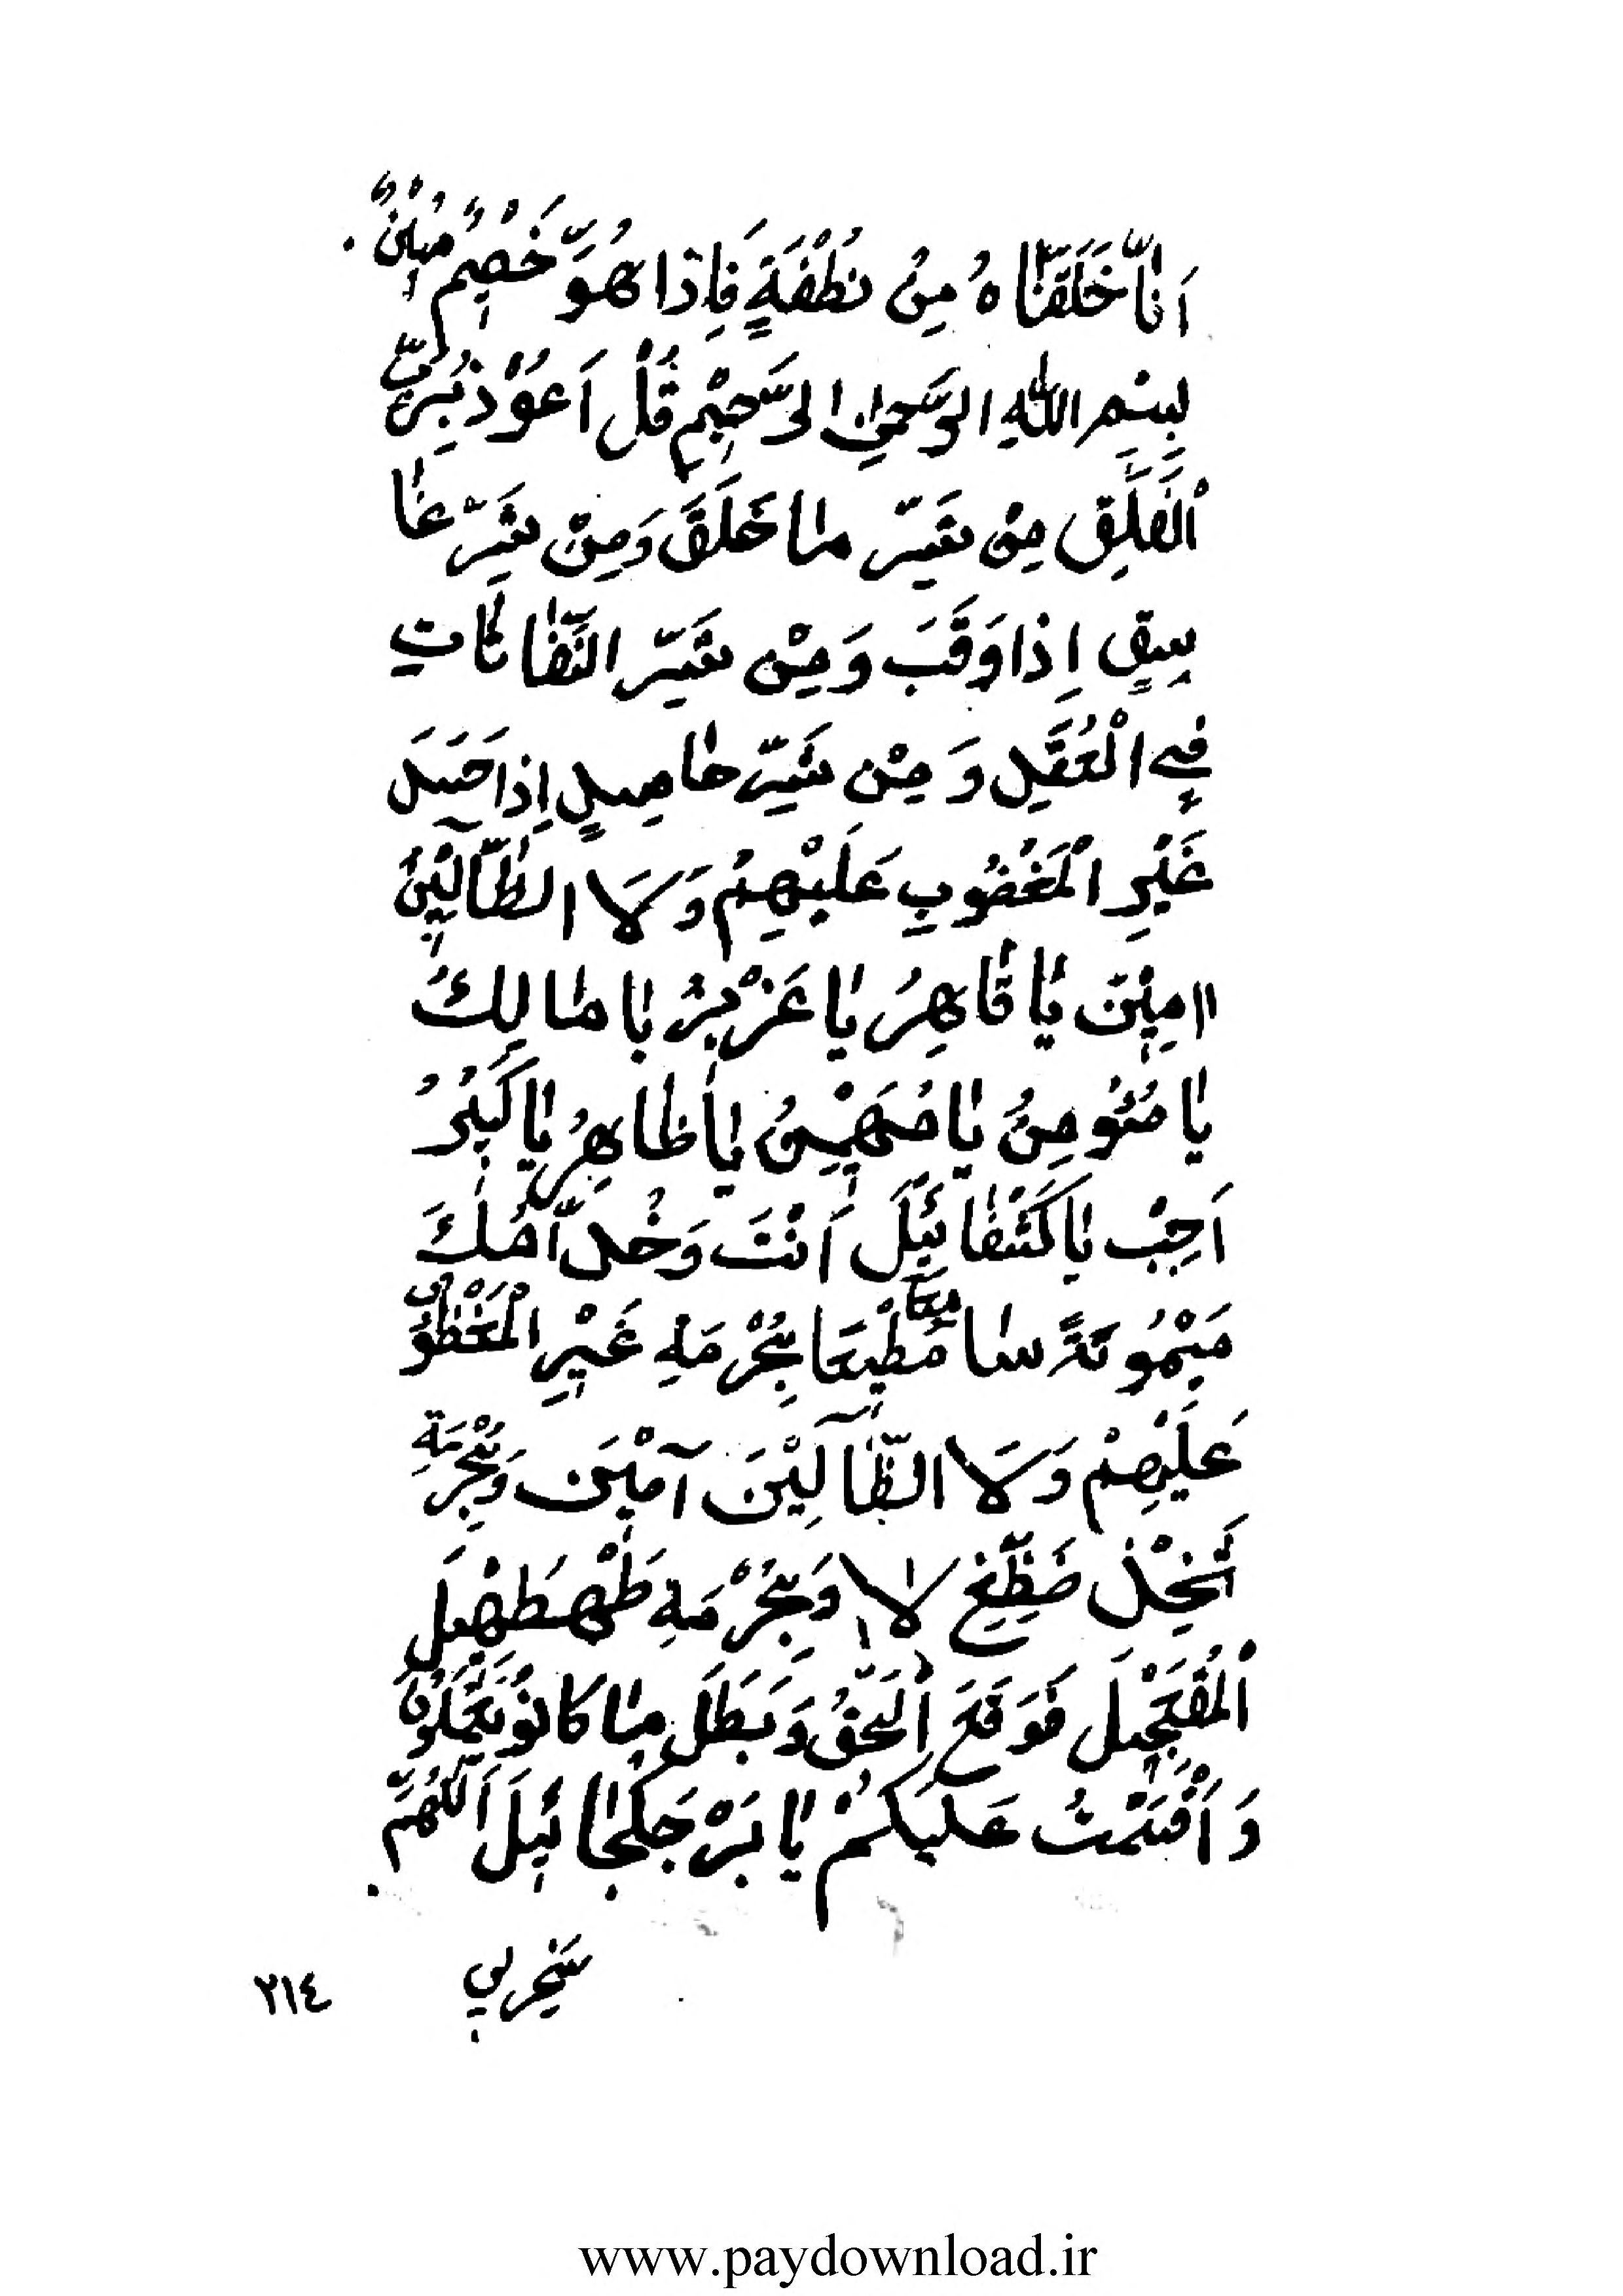 اَنّا خَلَقْناهُ مِنْ نُطْفَةٍ فَاِذا هُوَ خَصِيْمٌ مُبِيْنٌ
بِسْمِ اللهِ الرَّحْمٰنِ الرَّحِيْمِ قُلْ اَعُوْذُ بِرَبِّ
الْفَلَقِ مِنْ شَرِّ ما خَلَقَ وَمِنْ شَرِّ غا
سِقٍ اِذا وَقَبَ وَمِنْ شَرِّ النَّفّاثاتِ
فِي الْعُقَدِ وَمِنْ شَرِّ حاسِدٍ اِذا حَسَدَ
غَيْرِ الْمَغْضُوبِ عَلَيْهِمْ وَلَا الظّآلِّيْنَ
اامِيْنَ يا قاهِرُ يا عَزْيزُ يا مالِكُ
يا مُئْومِنُ يا مُهَيْمِنُ يا ظاهِرُ يا كَبِيْرُ
اَجِبْ يا كَشْفائِيْلَ اَنْتَ وَخُدّامُكَ
مُطِيْعًا بِحُرْمَةِ غَيْرِ الْمَغْظُوْبِ
عَلَيْهِمْ وَلَا الظّآلِيْنَ آمِيْنَ وَبِحُرْمَةِ
لا وَبِحُرْمَةِ طَهْطَهْيلَ
فَوَقَعَ الْحَقُّ وَبَطَلَ ما كانُوْ يَعْمَلُوْنَ
وَاَقْسَمْتُ عَلَيْكُمْ يا اَللّهُمَّ
سَخِّرلي
٢١٤
www.paydownload.ir